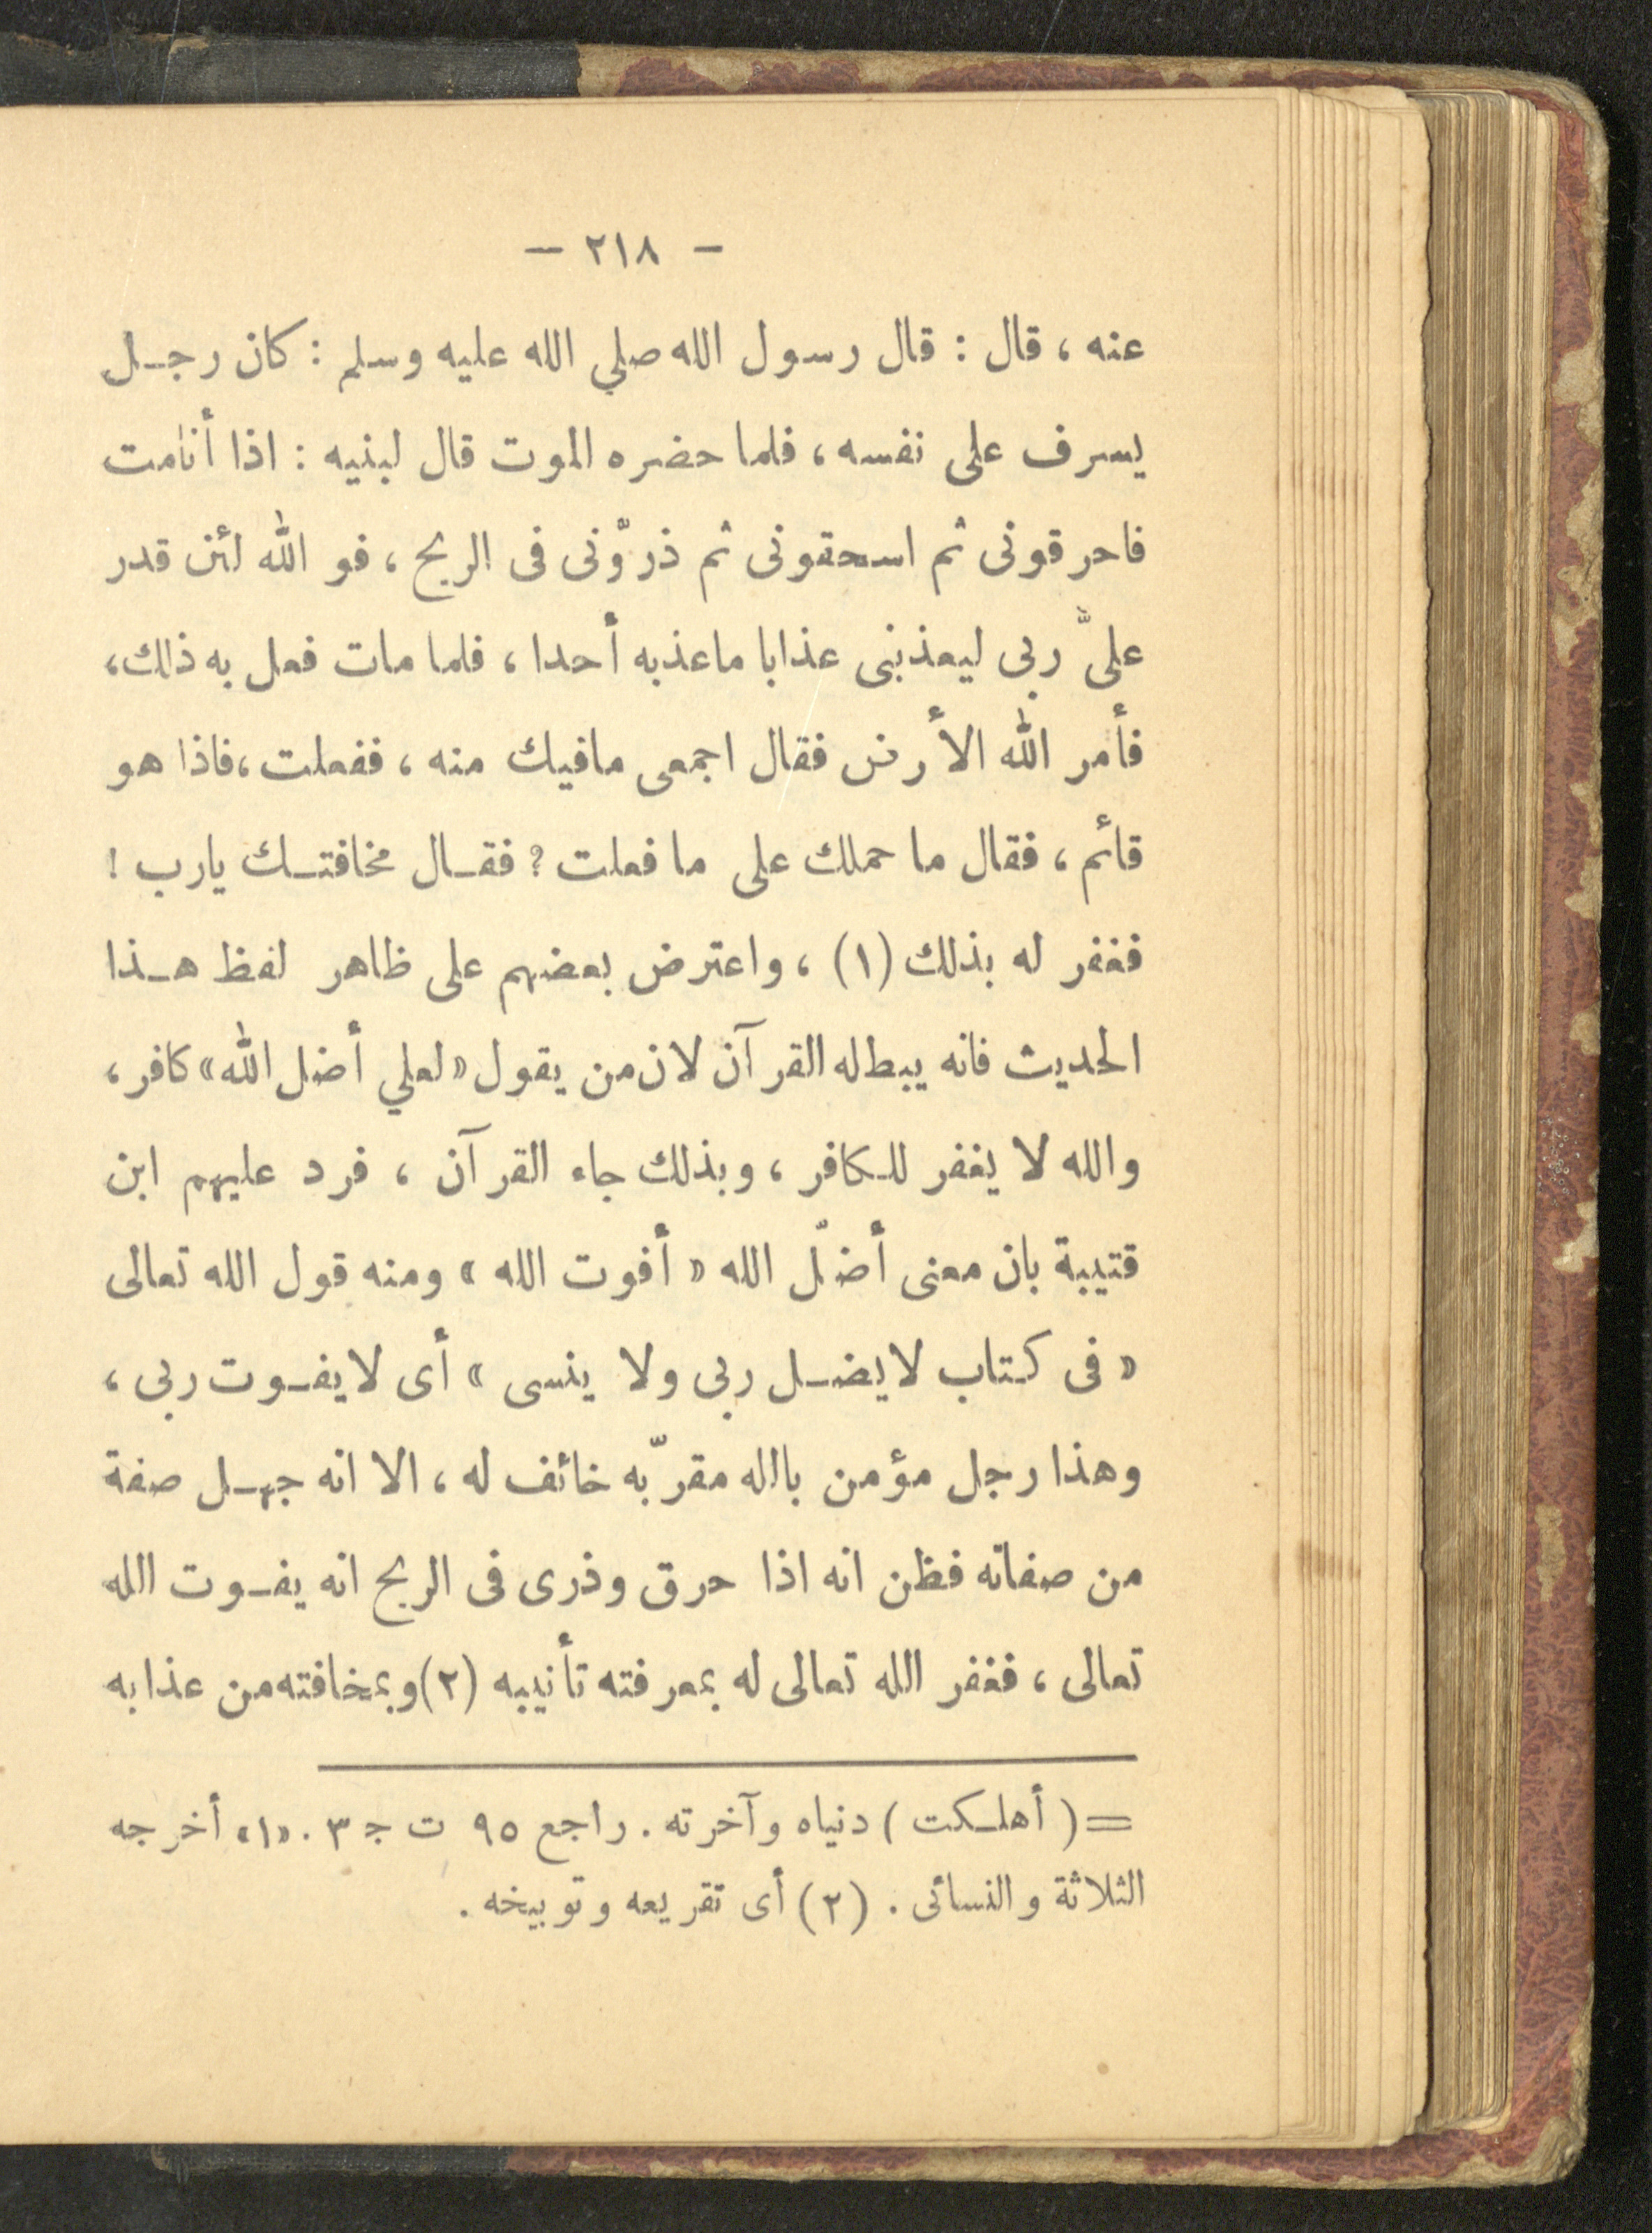 — ٢١٨ —
عنه ، قال : قال رسول الله صلي الله عليه وسلم : كان رجل
يسرف على نفسه ، فلما حضره الموت قال لبنيه : اذا أنا مت
فاحرقونى ثم اسحقونى ثم ذروّنى فى الريح ، فو الله لئن قدر
علىّ ربى ليعذبنى عذابا ماعذبه أحدا ، فلما مات فعل به ذلك ،
فأمر الله الأرض فقال اجمعى مافيك منه ، ففعلت ، فاذا هو
قائم ، فقال ما حملك على ما فعلت ؟ فقال مخافتك يارب !
فغفر له بذلك (١) ، واعترض بعضهم على ظاهر لفظ هذا
الحديث فانه يبطله القرآن لان من يقول «لعلي أضل الله» كافر ،
والله لا يغفر للكافر ، وبذلك جاء القرآن ، فرد عليهم ابن
قتيبة بان معنى أضلّ الله « أفوت الله » ومنه قول الله تعالى
« فى كتاب لايضل ربى ولا ينسى » أى لايفوت ربى ،
وهذا رجل مؤمن بالله مقرّ به خائف له ، الا انه جهل صفة
من صفاته فظن انه اذا حرق وذرى فى الريح انه يفوت الله
تعالى ، فغفر الله تعالى له بمعرفته تأنيبه (٢) وبمخافته من عذابه
= ( أهلكت ) دنياه وآخرته . راجع ٩٥ ت ج ٣ . «١» أخرجه
الثلاثة والنسائى . (٢) أى تقريعه وتوبيخه .